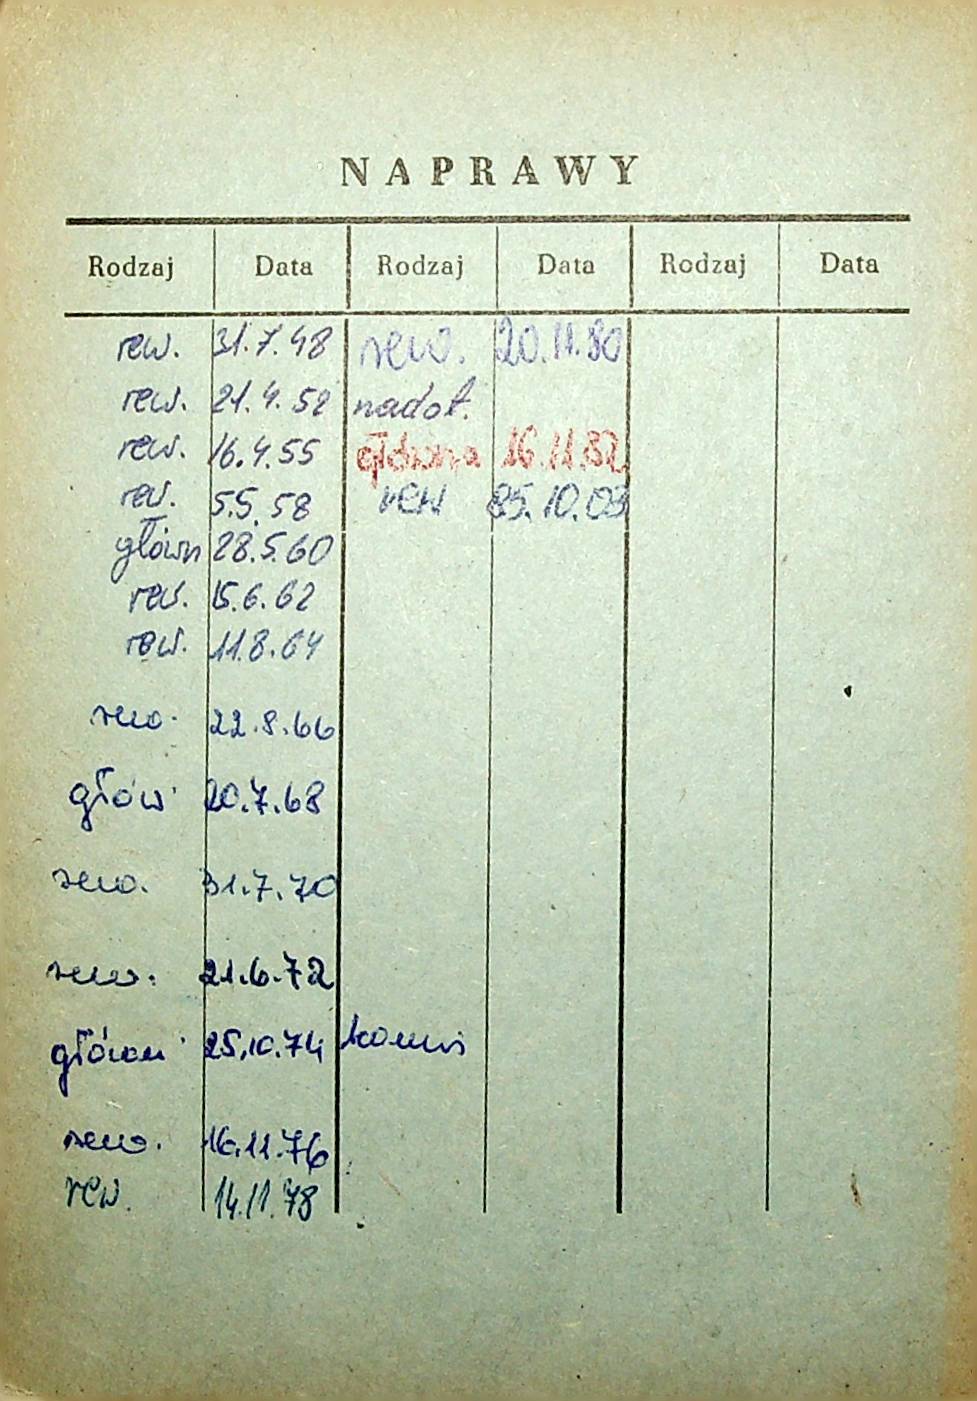 NAPRAWY
Rodzaj Data Rodzaj Data Rodzaj Data
rew. 31.7.48 rew. 20.11.80
rew. 21.4.52 nadot.
rew. 16.4.55 główna 16.11.82
rew. 5.5.58 rew 85.10.03
główn 28.5.60
rew. 15.6.62
rew. 11.8.64
rew. 22.8.66
głów. 20.7.68
rew. 31.7.70
rew. 21.6.72
główn 25.10.74 komis
rew. 16.11.76
rew. 14.11.78